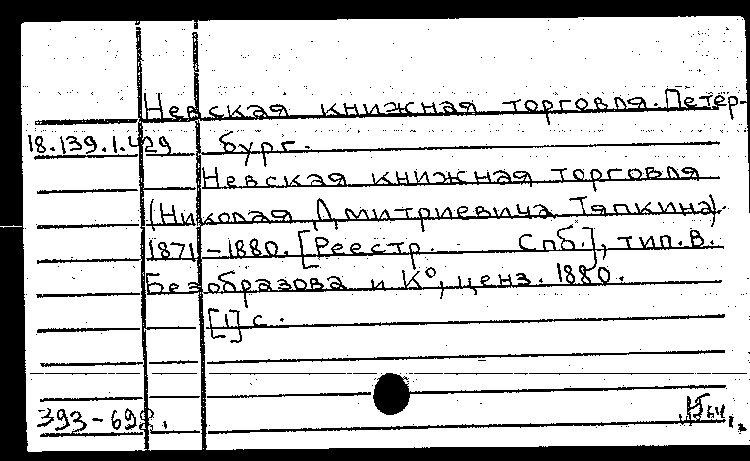 Невская книжная торговля. Петер-
18.139.1.429 бург.
Невская книжная торговля
(Николая Дмитриевича Тяпкина).
1871-1880. [Реестр. Спб.], тип. В.
Безобразова и К°, ценз. 1880.
[1] с.
393-698.